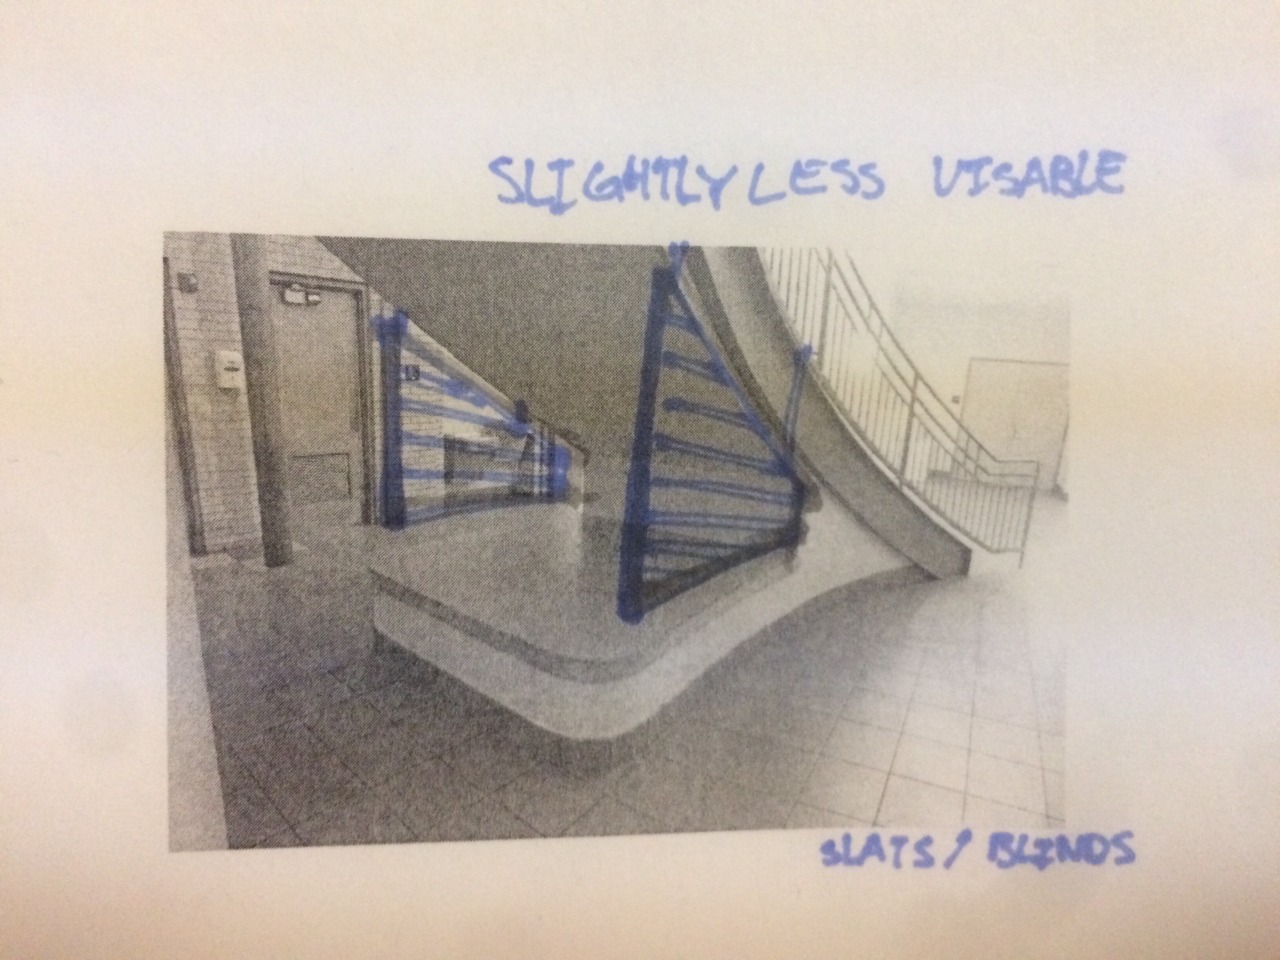 SLIGHTLY LESS VISABLE
SLATS / BLINDS